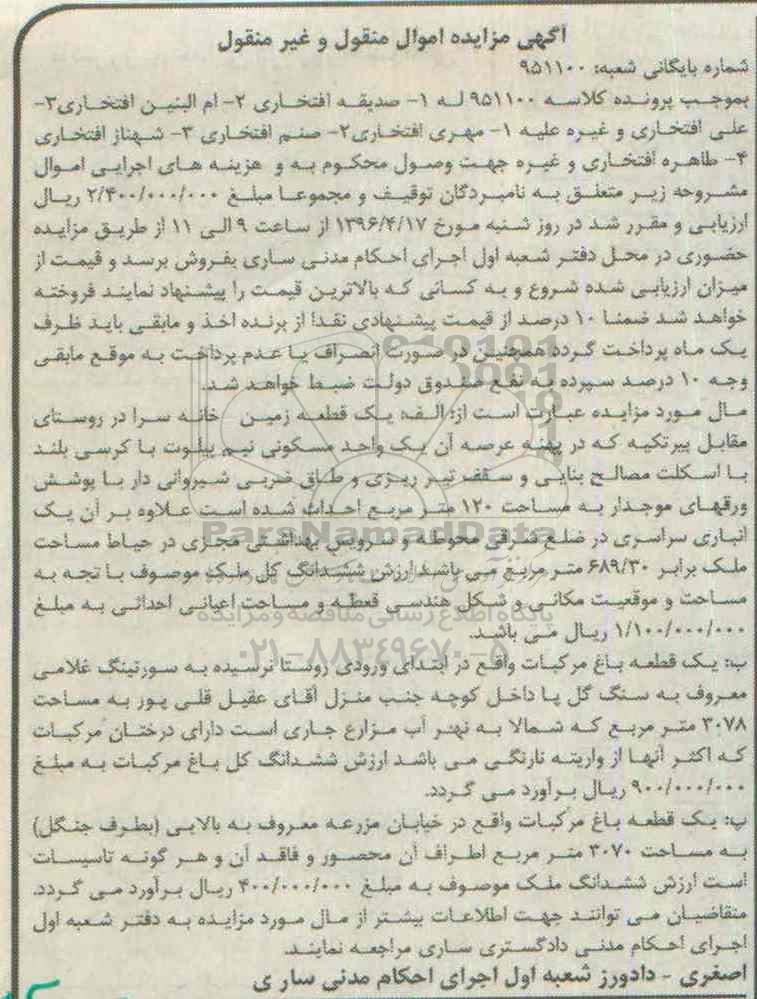 آگهی مزایده اموال منقول و غیر منقول
شماره بایگانی شعبه: ۹۵۱۱۰۰
بموجب پرونده کلاسه ۹۵۱۱۰۰ له ۱- صدیقه افتخاری ۲- ام البنین افتخاری۳-
علی افتخاری و غیره علیه ۱- مهری افتخاری۲- صنم افتخاری ۳- شهناز افتخاری
۴- طاهره افتخاری و غیره جهت وصول محکوم به و هزینه های اجرایی اموال
مشروحه زیر متعلق به نامبردگان توقیف و مجموعا مبلغ ۲/۴۰۰/۰۰۰/۰۰۰ ریال
ارزیابی و مقرر شد در روز شنبه مورخ ۱۳۹۶/۴/۱۷ از ساعت ۹ الی ۱۱ از طریق مزایده
حضوری در محل دفتر شعبه اول اجرای احکام مدنی ساری بفروش برسد و قیمت از
میزان ارزیابی شده شروع و به کسانی که بالاترین قیمت را پیشنهاد نمایند فروخته
خواهد شد ضمنا ۱۰ درصد از قیمت پیشنهادی نقدا از برنده اخذ و مابقی باید ظرف
یک ماه پرداخت گردد همچنین در صورت انصراف یا عدم پرداخت به موقع مابقی
وجه ۱۰ درصد سپرده به نفع صندوق دولت ضبط خواهد شد.
مال مورد مزایده عبارت است از: الف: یک قطعه زمین خانه سرا در روستای
مقابل پیرتکیه که در پهنه عرصه آن یک واحد مسکونی نیم پیلوت با کرسی بلند
با اسکلت مصالح بنایی و سقف تیر ریزی و طاق ضربی شیروانی دار با پوشش
ورقهای موجدار به مساحت ۱۲۰ متر مربع احداث شده است علاوه بر آن یک
انباری سراسری در ضلع شرقی محوطه و سرویس بهداشتی مجزی در حیاط مساحت
ملک برابر ۶۸۹/۳۰ متر مربع می باشد ارزش ششدانگ کل ملک موصوف با تجه به
مساحت و موقعیت مکانی و شکل هندسی قعطه و مساحت اعیانی احداثی به مبلغ
۱/۱۰۰/۰۰۰/۰۰۰ ریال می باشد.
ب: یک قطعه باغ مرکبات واقع در ابتدای ورودی روستا نرسیده به سورتینگ غلامی
معروف به سنگ گل پا داخل کوچه جنب منزل آقای عقیل قلی پور به مساحت
۳۰۷۸ متر مربع که شمالا به نهر آب مزارع جاری است دارای درختان مرکبات
که اکثر آنها از واریته نارنگی می باشد ارزش ششدانگ کل باغ مرکبات به مبلغ
۹۰۰/۰۰۰/۰۰۰ ریال برآورد می گردد.
پ: یک قطعه باغ مرکبات واقع در خیابان مزرعه معروف به بالایی (بطرف جنگل)
به مساحت ۳۰۷۰ متر مربع اطراف آن محصور و فاقد آن و هر گونه تاسیسات
است ارزش ششدانگ ملک موصوف به مبلغ ۴۰۰/۰۰۰/۰۰۰ ریال برآورد می گردد.
متقاضیان می توانند جهت اطلاعات بیشتر از مال مورد مزایده به دفتر شعبه اول
اجرای احکام مدنی دادگستری ساری مراجعه نمایند.
اصغری - دادورز شعبه اول اجرای احکام مدنی سار ی
ParsNamadData
پایگاه اطلاع رسانی مناقصه و مزایده
۰۲۱-۸۸۳۴۹۶۷۰-۵